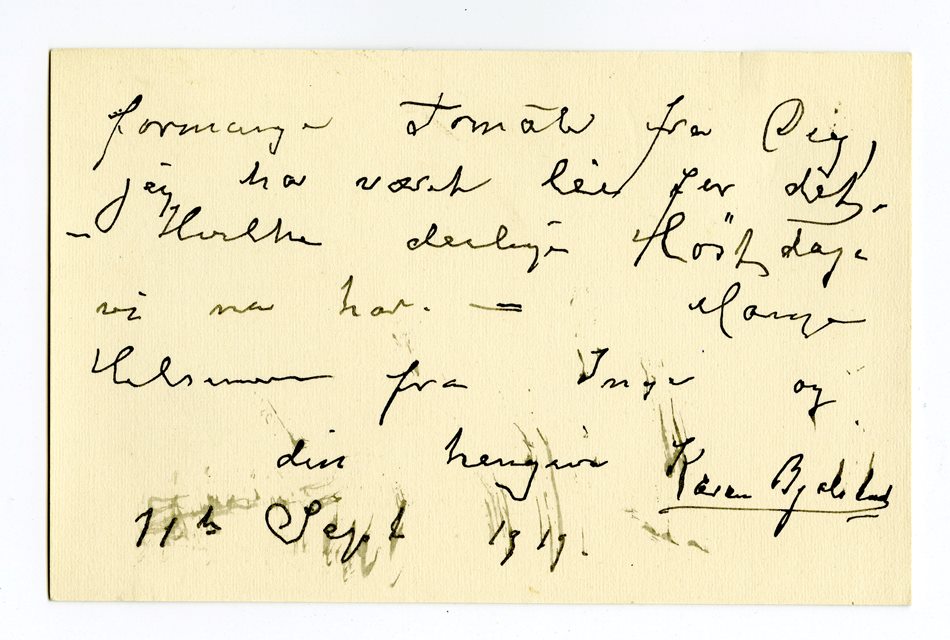 formange Tomäte fra Dig,
jeg har været lei for det,
– Hvilke deilige Höst dage
vi nu har. = Mange
Hilsener fra Inger og
din hengivne Karen Bjølstad
11te Sept 1919.